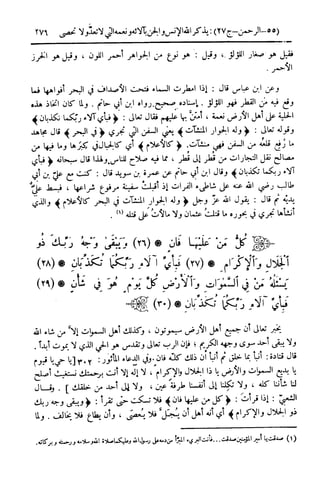 (٥٥ - الرحمن - ج٢٧) : يذكر الله الإنس والجن بآلائه ونعمه التي لا تعد ولا تحصى ٢٧٦
فقيل هو صغار اللؤلؤ . وقيل : هو نوع من الجواهر أحمر اللون ، وقيل هو الخرز
الأحمر .
وعن ابن عباس قال : إذا امطرت السماء فتحت الأصداف في البحر أفواهها فما
وقع فيه من القطر فهو اللؤلؤ . إسناده صحيح . رواه ابن أبي حاتم . ولما كان اتخاذ هذه
الحلية على أهل الأرض نعمة ، أمتن بها عليهم فقال تعالى : ﴿ فبأي آلاء ربكما تكذبان ﴾
وقوله تعالى : ﴿ وله الجوار المنشآت ﴾ يعني السفن التي تجري ﴿ في البحر ﴾ قال مجاهد
ما رُفع قلعه من السفن فهي منشآت . ﴿ كالأعلام ﴾ أي كالجبال في كبرها وما فيها من
مصالح نقل التجارات من قطر إلى قطر ، مما فيه صلاح للناس ولهذا قال سبحانه ﴿ فبأي
آلاء ربكما تكذبان ﴾ وقال ابن أبي حاتم عن عمرة بن سويد قال : كنت مع علي بن أبي
طالب رضي الله عنه على شاطىء الفرات إذ أقبلت سفينة مرفوع شراعها ، فبسط علي
يديه ثم قال : يقول الله عز وجل ﴿ وله الجوار المنشآت في البحر كالأعلام ﴾ والذي
أنشأها تجري في بحوره ما قتلت عثمان ولا مالأت على قتله (١) .
كُلُّ مَنْ عَلَيْهَا فَانٍ ﴿٢٦﴾ وَيَبْقَى وَجْهُ رَبِّكَ ذُو
الْجَلَالِ وَالْإِكْرَامِ ﴿٢٧﴾ فَبِأَيِّ آلَاءِ رَبِّكُمَا تُكَذِّبَانِ ﴿٢٨﴾
يَسْئَلُهُ مَنْ فِي السَّمَوَاتِ وَالْأَرْضِ كُلَّ يَوْمٍ هُوَ فِي شَأْنٍ ﴿٢٩﴾
فَبِأَيِّ آلَاءِ رَبِّكُمَا تُكَذِّبَانِ ﴿٣٠﴾
يخبر تعالى أن جميع أهل الأرض سيموتون ، وكذلك أهل السموات إلا من شاء الله
ولا يبقى أحد سوى وجهه الكريم ؛ فإن الرب تعالى وتقدس هو الحي الذي لا يموت أبداً .
قال قتادة : أنبأ بما خلق ثم أنبأ أن ذلك كله فانٍ . وفي الدعاء المأثور : ٣٠٢ [ يا حي يا قيوم
يا بديع السموات والأرض يا ذا الجلال والإكرام ، لا إله إلا أنت برحمتك نستغيث أصلح
لنا شأننا كله ، ولا تكلنا إلى أنفسنا طرفة عين ، ولا إلى أحد من خلقك ] . وقال
الشعبي : إذا قرأت : ﴿ كل من عليها فان ﴾ فلا تسكت حتى تقرأ : ﴿ ويبقى وجه ربك
ذو الجلال والإكرام ﴾ أي أنه أهل أن يُجَل فلا يُعصى ، وأن يطاع فلا يخالف . ولما
(١) صدقت يا أمير المؤمنين صدقت ... فأنت البريء المبرأ من دمه على رسول الله وعليكما صلاة الله وسلامه ورحمته وبركاته .